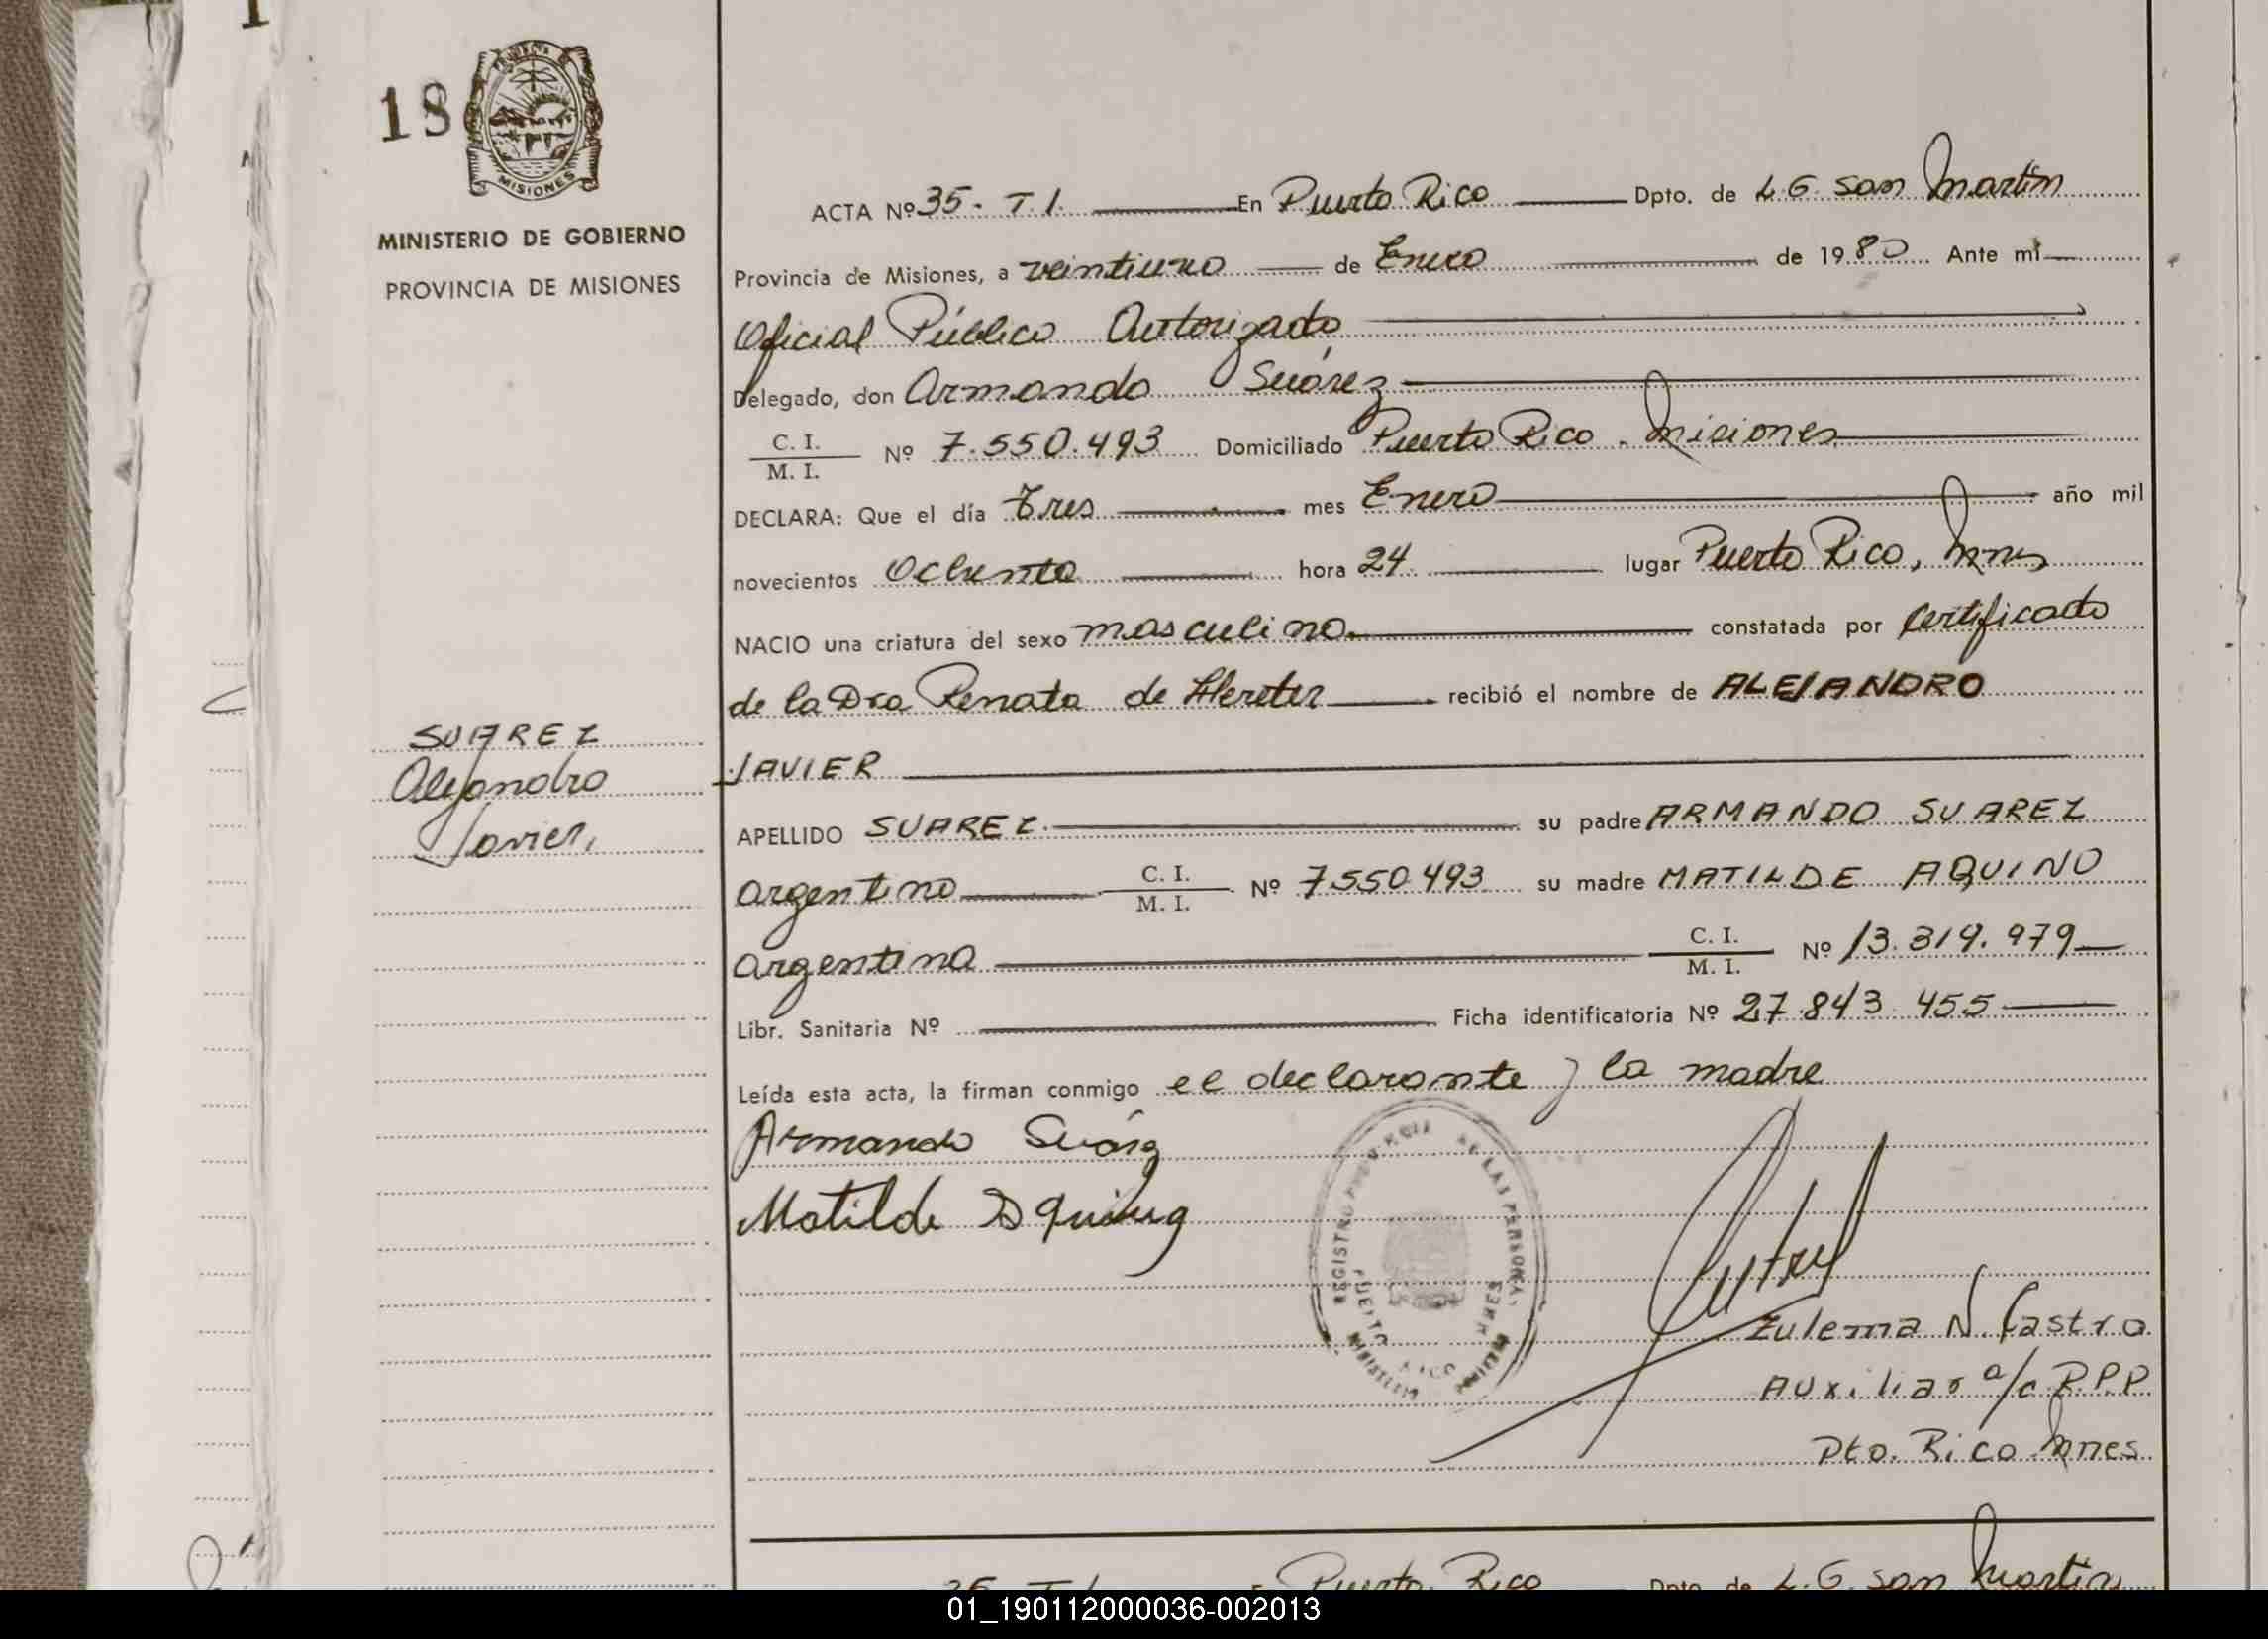 18
MISIONES
MINISTERIO DE GOBIERNO
PROVINCIA DE MISIONES
SUAREZ
Alejandro
Javier,
ACTA Nº 35. T I. En Puerto Rico Dpto. de L. G. San Martin
Provincia de Misiones, a veintiuno de Enero de 1980. Ante mi
Oficial Público Autorizado
Delegado, don Armando Suárez
C. I. / M. I. Nº 7.550.493 Domiciliado Puerto Rico. Misiones
DECLARA: Que el día Tres mes Enero año mil
novecientos Ochenta hora 24 lugar Puerto Rico, Mnes
NACIO una criatura del sexo masculino. constatada por Certificado
de la Dra Renata de Hereter recibió el nombre de ALEJANDRO
JAVIER
APELLIDO SUAREZ. su padre ARMANDO SUAREZ
argentino C. I. / M. I. Nº 7550493 su madre MATILDE AQUINO
argentina C. I. / M. I. Nº 13.319.979
Libr. Sanitaria Nº Ficha identificatoria Nº 27.843.455
Leída esta acta, la firman conmigo el declarante y la madre
Armando Suárez
Matilde Aquino
REGISTRO DE LAS PERSONAS
PUERTO RICO MNES
MINISTERIO
Zulema N. Castro
Auxiliar a/c R.P.P.
Pto. Rico. Mnes.
35 T I Puerto Rico Dpto. de L. G. San Martin
01_190112000036-002013